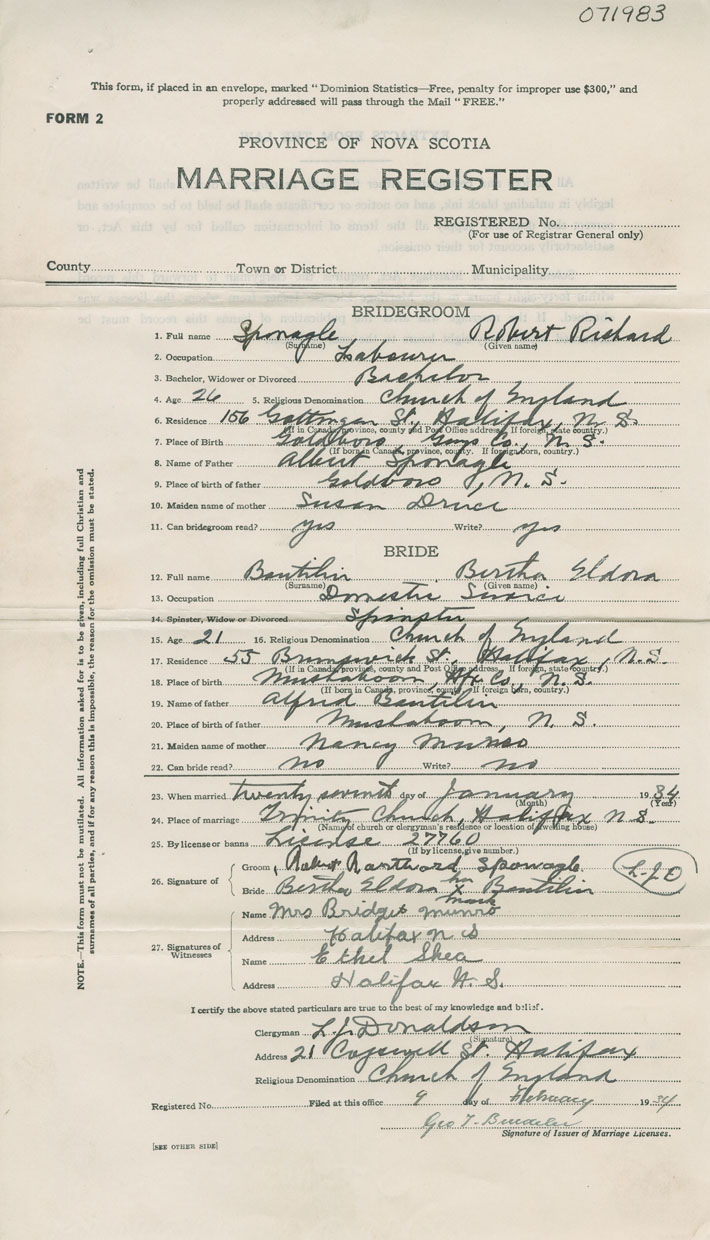 071983
This form, if placed in an envelope, marked "Dominion Statistics—Free, penalty for improper use $300," and
properly addressed will pass through the Mail "FREE."
FORM 2
PROVINCE OF NOVA SCOTIA
MARRIAGE REGISTER
REGISTERED No.
(For use of Registrar General only)
County Town or District Municipality
BRIDEGROOM
1. Full name Sponagle Robert Richard
(Surname) (Given name)
2. Occupation Labourer
3. Bachelor, Widower or Divorced Bachelor
4. Age 26 5. Religious Denomination Church of England
6. Residence 156 Gottingen St., Halifax, N. S.
(If in Canada, province, county and Post Office address. If foreign, state country.)
7. Place of Birth Goldboro, Guys Co., N. S.
(If born in Canada, province, county. If foreign born, country.)
8. Name of Father Albert Sponagle
9. Place of birth of father Goldboro, N. S.
10. Maiden name of mother Susan
11. Can bridegroom read? yes Write? yes
BRIDE
12. Full name Bautilin Bertha Eldora
(Surname) (Given name)
13. Occupation Domestic Service
14. Spinster, Widow or Divorced Spinster
15. Age 21 16. Religious Denomination Church of England
17. Residence 55 Brunswick St., Halifax, N.S.
(If in Canada, province, county and Post Office address. If foreign, state country.)
18. Place of birth Mushaboom, Hfx Co., N. S.
(If born in Canada, province, county. If foreign born, country.)
19. Name of father Alfred Bautilin
20. Place of birth of father Mushaboom, N. S.
21. Maiden name of mother Nancy Munro
22. Can bride read? no Write? no
23. When married twenty seventh day of January 1934
(Month) (Year)
24. Place of marriage Trinity Church, Halifax N.S.
(Name of church or clergyman's residence or location of dwelling house)
25. By license or banns License 27760
(If by license, give number.)
26. Signature of
Groom Robert Sponagle
L.J.D
Bride Bertha Eldora her X mark Bautilin
27. Signatures of Witnesses
Name Mrs Bridget Munro
Address Halifax N S
Name Ethel Shea
Address Halifax N. S.
I certify the above stated particulars are true to the best of my knowledge and belief.
Clergyman L. J. Donaldson
(Signature)
Address 21 Cogswell St. Halifax
Religious Denomination Church of England
Registered No. Filed at this office 9 day of February 1934
Geo T.
Signature of Issuer of Marriage Licenses.
[SEE OTHER SIDE]
NOTE.—This form must not be mutilated. All information asked for is to be given, including full Christian and
surnames of all parties, and if for any reason this is impossible, the reason for the omission must be stated.